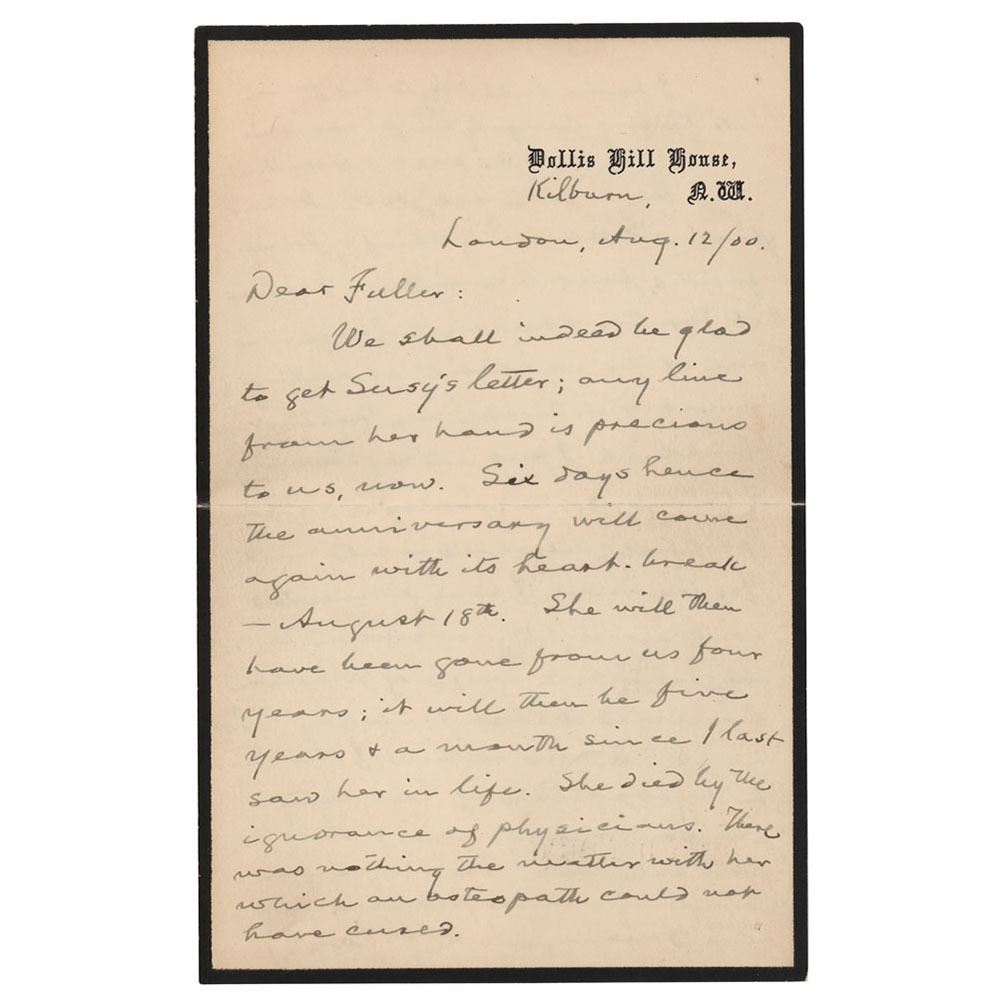 Dollis Hill House,
Kilburn, N.W.
London, Aug. 12/00.
Dear Fuller:
We shall indeed be glad
to get Susy's letter; any line
from her hand is precious
to us, now. Six days hence
the anniversary will come
again with its heart-break
— August 18th. She will then
have been gone from us four
years; it will then be five
years & a month since I last
saw her in life. She died by the
ignorance of physicians. There
was nothing the matter with her
which an osteopath could not
have cured.